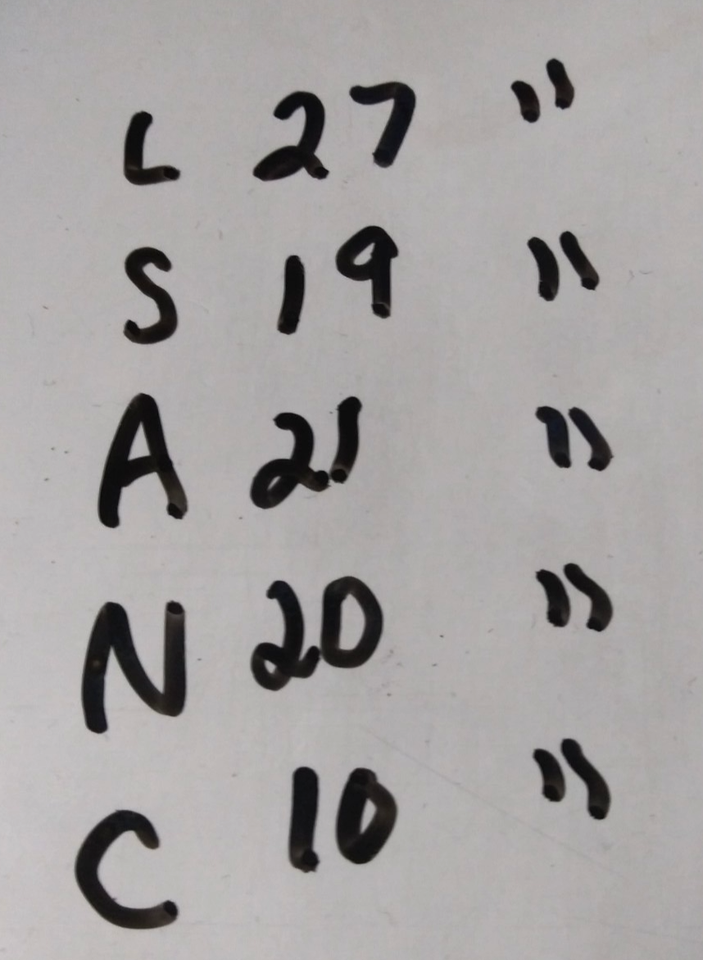 L 27 "
S 19 "
A 21 "
N 20 "
C 10 "